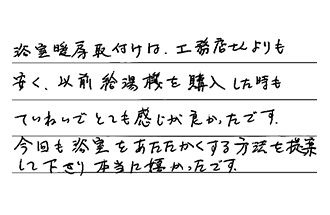 浴室暖房取付けは、工務店さんよりも
安く、以前給湯機を購入した時も
ていねいでとても感じが良かったです。
今回も浴室をあたたかくする方法を提案
して下さり本当に嬉かったです。